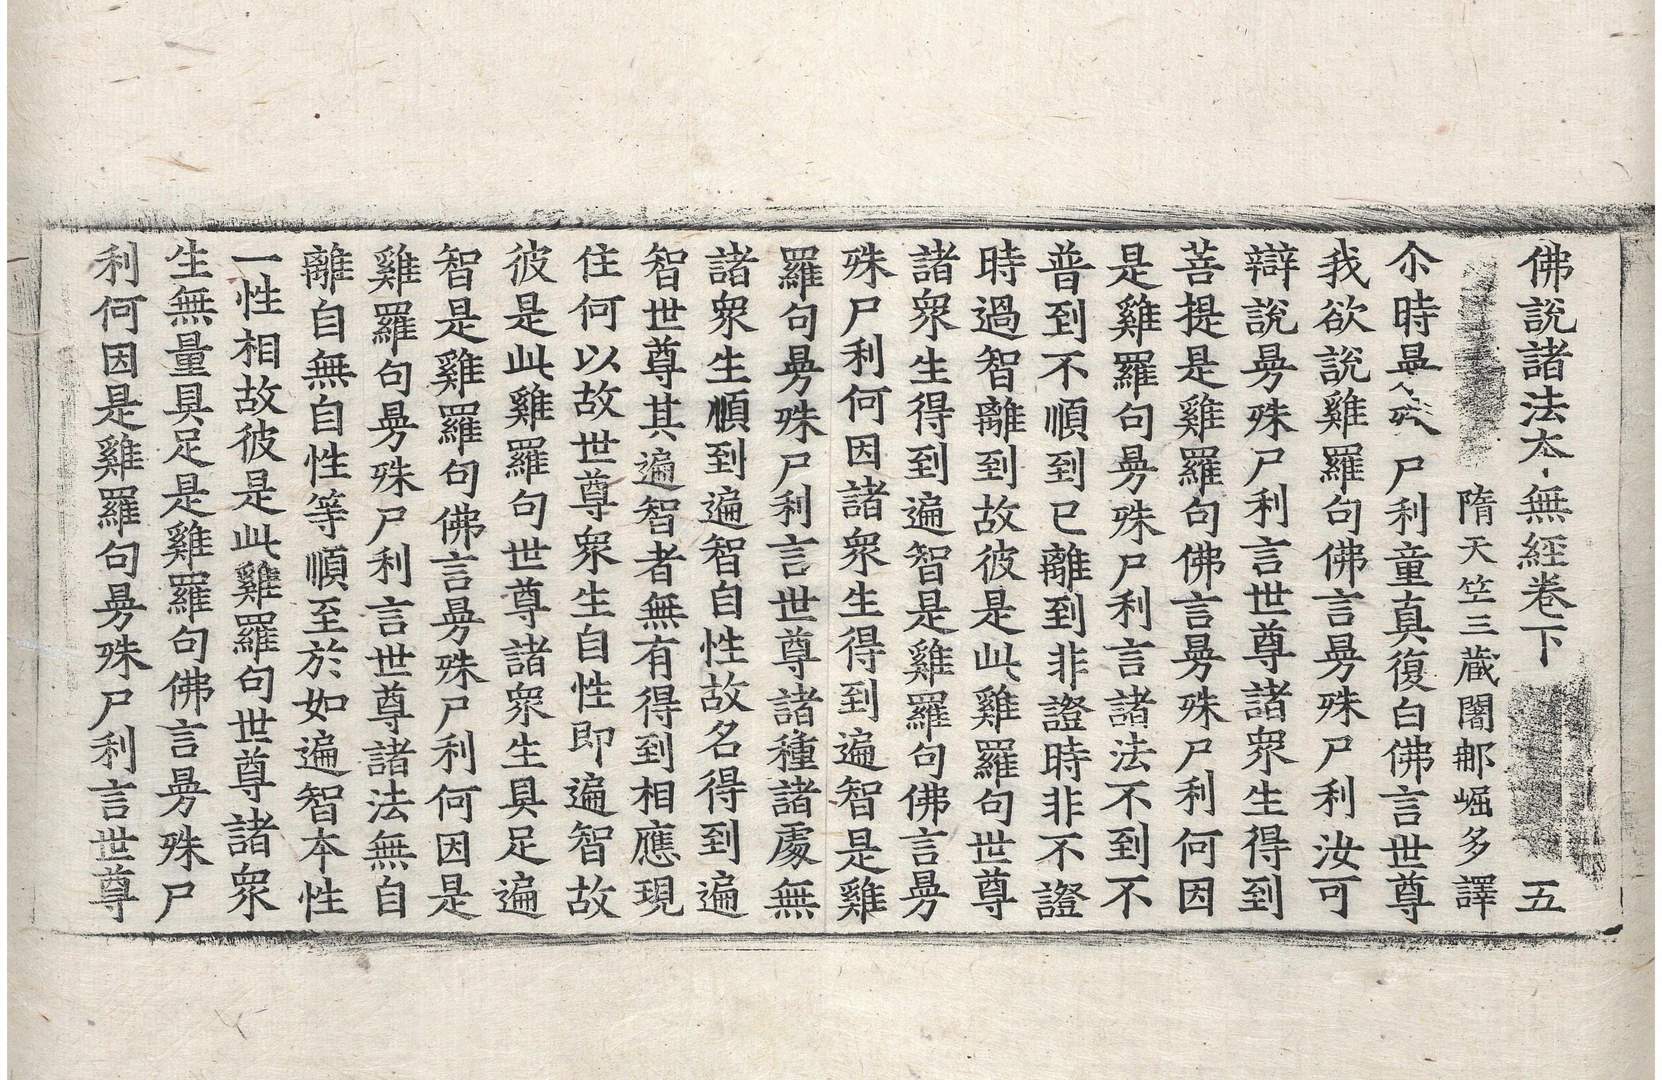 佛說諸法夲無經卷下 五
隋天竺三藏闍郍崛多譯
尒時曼殊尸利童真復白佛言世尊
我欲說雞羅句佛言曼殊尸利汝可
辯說曼殊尸利言世尊諸衆生得到
菩提是雞羅句佛言曼殊尸利何因
是雞羅句曼殊尸利言諸法不到不
普到不順到已離到非證時非不證
時過智離到故彼是此雞羅句世尊
諸衆生得到遍智是雞羅句佛言曼
殊尸利何因諸衆生得到遍智是雞
羅句曼殊尸利言世尊諸種諸處無
諸衆生順到遍智自性故名得到遍
智世尊其遍智者無有得到相應現
住何以故世尊衆生自性即遍智故
彼是此雞羅句世尊諸衆生具足遍
智是雞羅句佛言曼殊尸利何因是
雞羅句曼殊尸利言世尊諸法無自
離自無自性等順至於如遍智夲性
一性相故彼是此雞羅句世尊諸衆
生無量具足是雞羅句佛言曼殊尸
利何因是雞羅句曼殊尸利言世尊